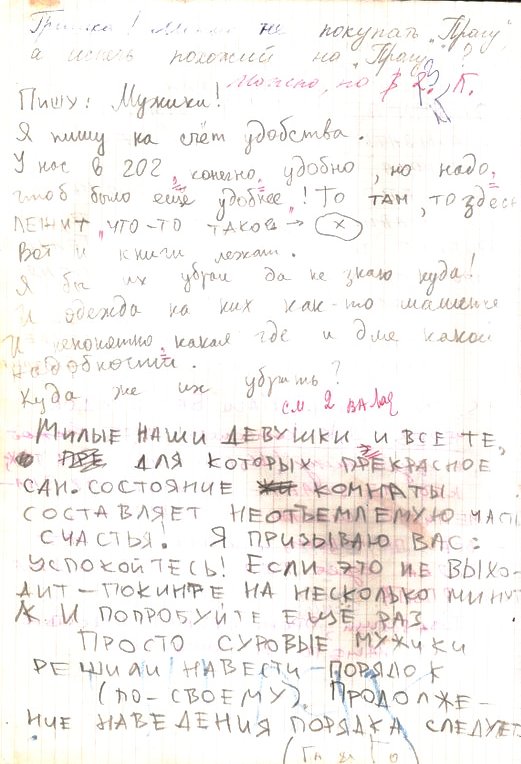 Гришка! Может не покупать „Прагу",
а искать похожий на „Прагу"?
Можно, но в 2. Г.
Пишу: Мужики!
Я пишу на счёт удобства.
У нас в 202, конечно, удобно, но надо,
чтоб было ещё удобнее! То там, то здесь
лежит „что-то такое → (x)
Вот и книги лежат.
Я бы их убрал да не знаю куда!
И одежда на них как-то
И непонятно, какая где и для какой
надобности.
Куда же их убрать?
см 2 вала
МИЛЫЕ НАШИ ДЕВУШКИ, И ВСЕ ТЕ,
ДЛЯ КОТОРЫХ ПРЕКРАСНОЕ
САН. СОСТОЯНИЕ КОМНАТЫ
СОСТАВЛЯЕТ НЕОТЪЕМЛЕМУЮ ЧАСТЬ
СЧАСТЬЯ! Я ПРИЗЫВАЮ ВАС:
УСПОКОЙТЕСЬ! ЕСЛИ ЭТО НЕ ВЫХО-
ДИТ – ПОКИНТЕ НА НЕСКОЛЬКО МИНУТ
И ПОПРОБУЙТЕ ЕЩЁ РАЗ
ПРОСТО СУРОВЫЕ МУЖИКИ
РЕШИЛИ НАВЕСТИ ПОРЯДОК
(ПО-СВОЕМУ). ПРОДОЛЖЕ-
НИЕ НАВЕДЕНИЯ ПОРЯДКА СЛЕДУЕТ